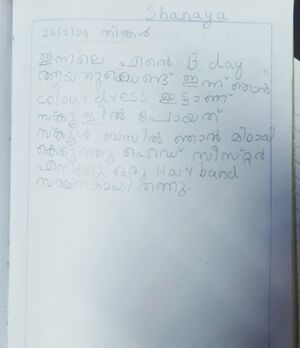 Shanaya
26/2/24 തിങ്കൾ
ഇന്നലെ എന്റെ B day
ആയതുകൊണ്ട് ഇന്ന് ഞാൻ
colour dress ഇട്ടാണ്
സ്കൂളിൽ പോയത്
സ്കൂൾ ബസിൽ ഞാൻ മിഠായി
കൊടുത്തു ഹെഡ് സിസ്റ്റർ
എനിക്കു ഒരു Hair band
സമ്മാനമായി തന്നു.